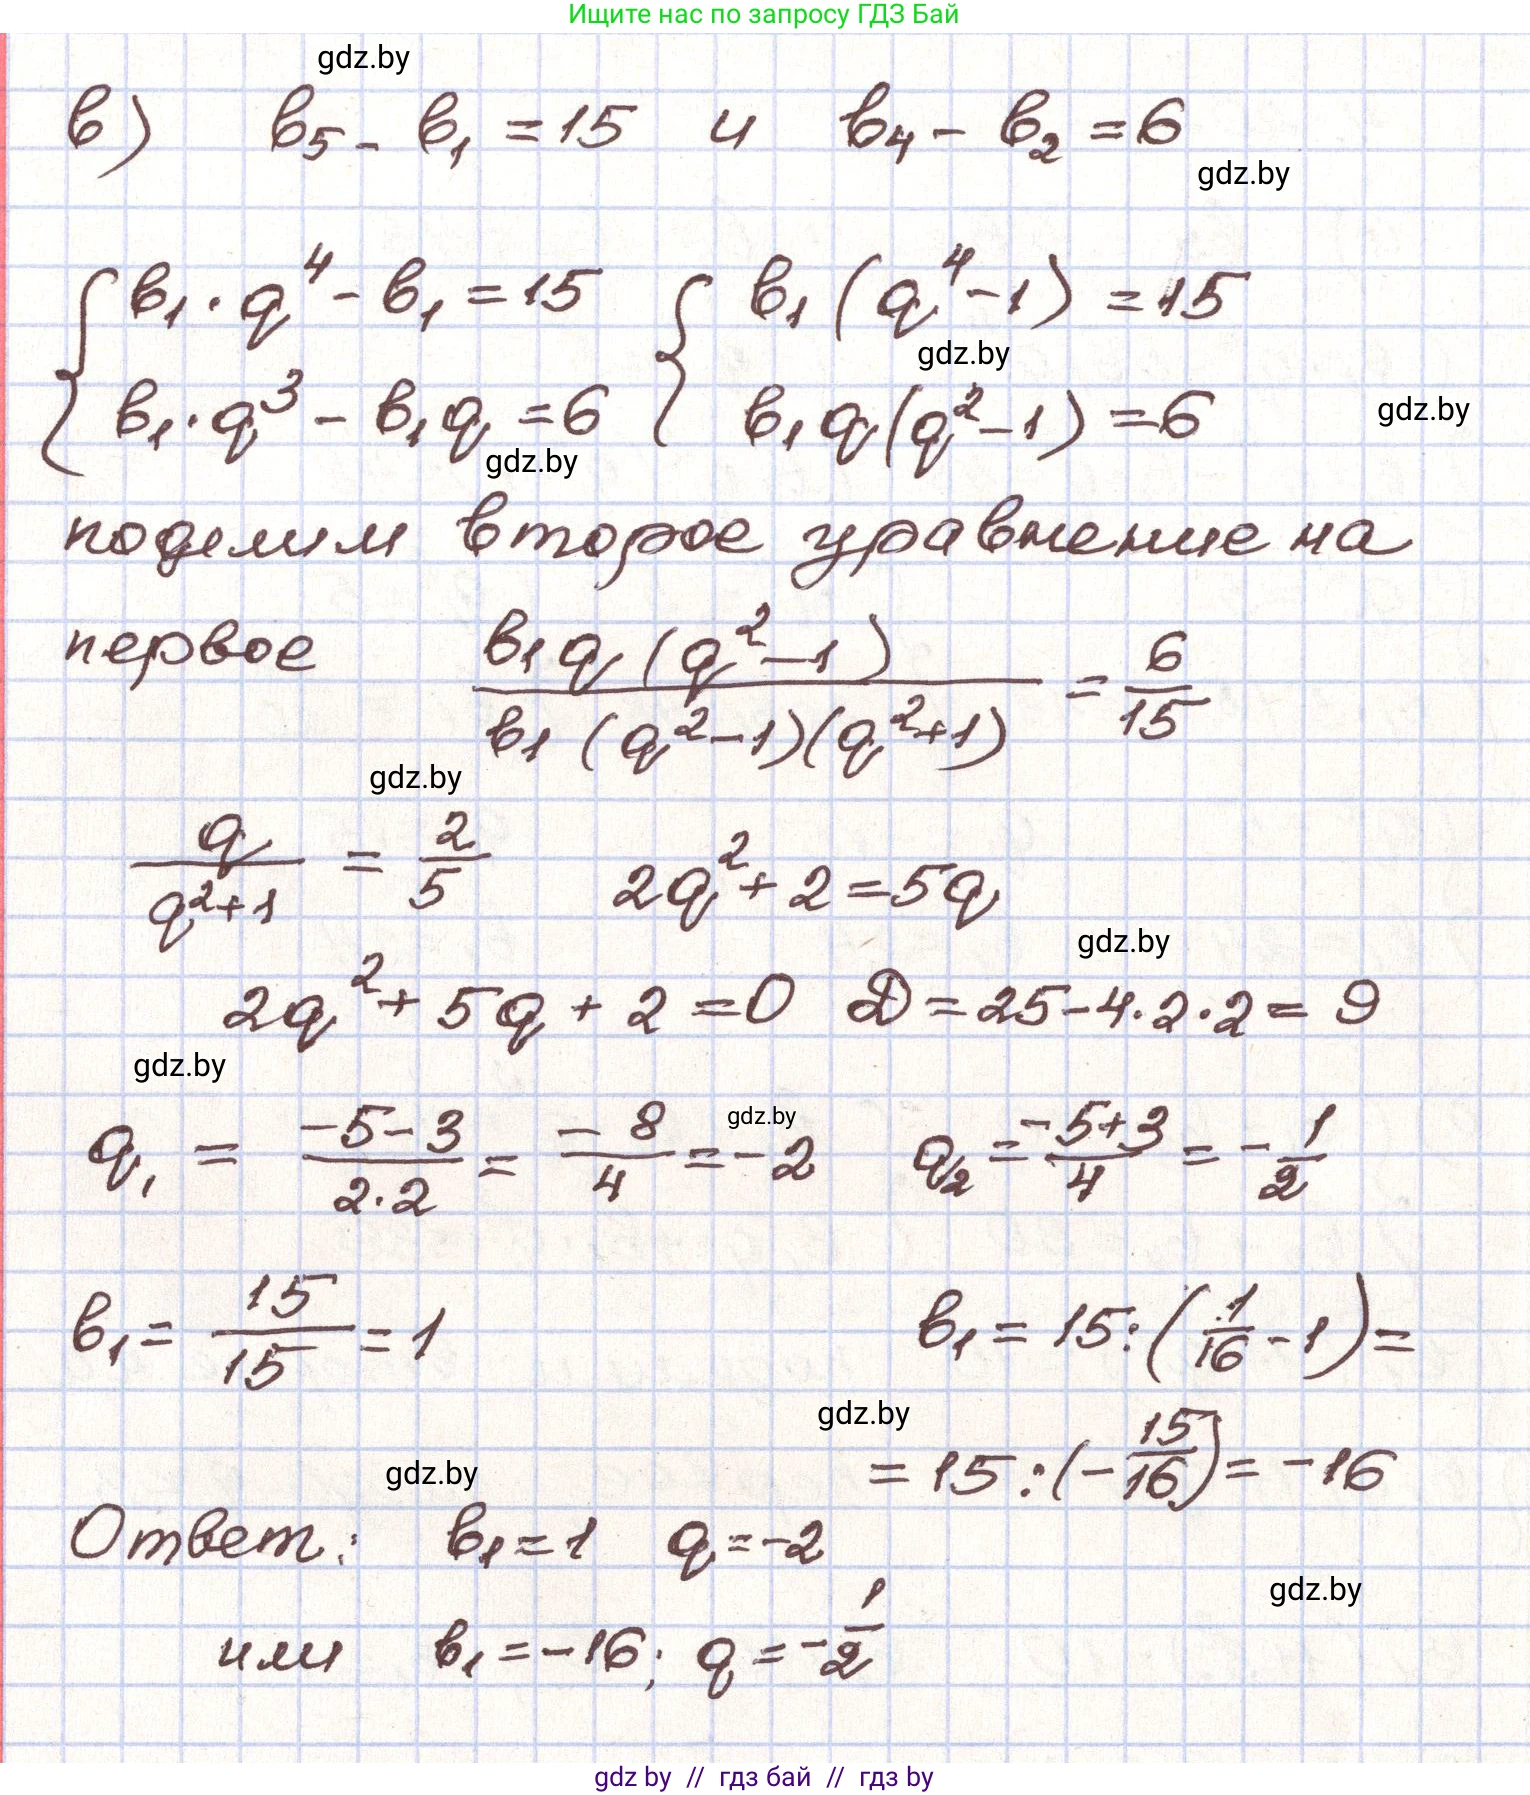 Ищите нас по запросу ГДЗ Бай
gdz.by
в) b₅ - b₁ = 15 и b₄ - b₂ = 6
gdz.by
{ b₁ · q⁴ - b₁ = 15 { b₁ (q⁴ - 1) = 15
gdz.by
b₁ · q³ - b₁q = 6 b₁q(q² - 1) = 6
gdz.by
gdz.by
поделим второе уравнение на
первое b₁q(q² - 1) / b₁(q² - 1)(q² + 1) = 6/15
gdz.by
q/(q² + 1) = 2/5 2q² + 2 = 5q
gdz.by
2q² + 5q + 2 = 0 D = 25 - 4 · 2 · 2 = 9
gdz.by
gdz.by
q₁ = (-5 - 3)/(2 · 2) = -8/4 = -2 q₂ = (-5 + 3)/4 = -1/2
b₁ = 15/15 = 1 b₁ = 15 : (1/16 - 1) =
gdz.by
= 15 : (-15/16) = -16
gdz.by
Ответ: b₁ = 1 q = -2
gdz.by
или b₁ = -16; q = -1/2
gdz by // гдз бай // гдз by